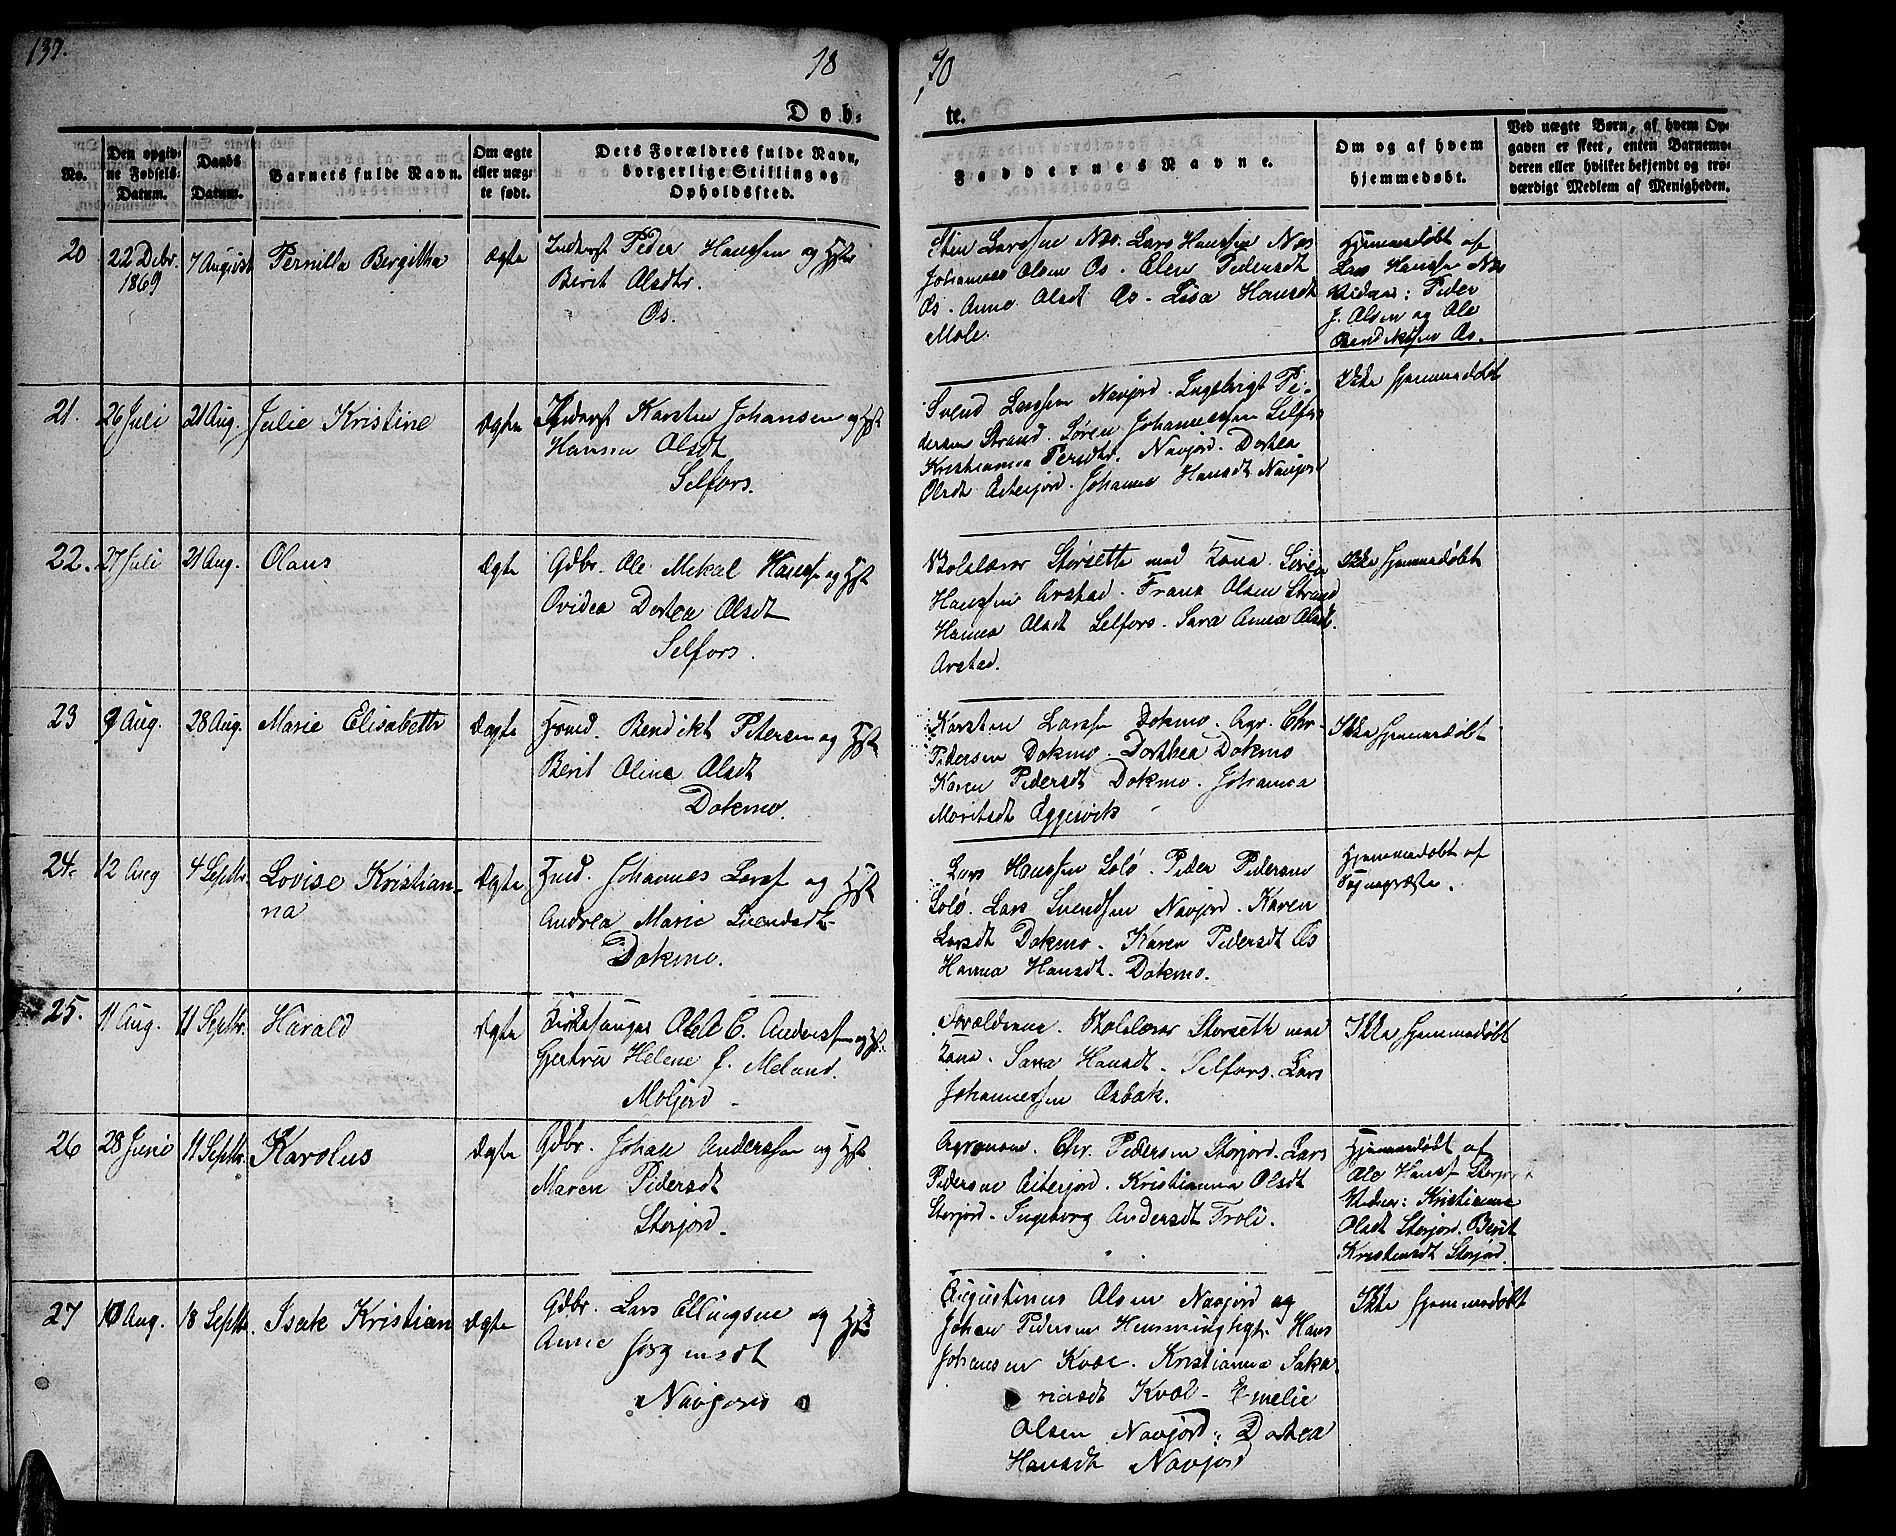 137.
18
70
Døb-
te.
No.
Den opgiv-
ne Fødsels-
Datum.
Daabs
Datum.
Barnets fulde Navn.
Om ægte
eller uæg-
te født.
Dets Forældres fulde Navn,
borgerlige Stilling og
Opholdssted.
Faddernes Navne.
Om og af hvem
hjemmedøbt.
Ved uægte Børn, af hvem Op-
gaven er skeet, enten Barnemo-
deren eller hvilket bekjendt og tro-
værdigt Medlem af Menigheden.
20
22 Debr.
1869
7 August
Pernilla Bergitha
Ægte
Inderst Peder Hanssen og Hst
Berit Olsdtr.
Os.
Sten Larssen Næs. Lars Hanssen Næs
Johannes Olsen Os. Elen Pedersdt
Os. Anne Olsdt Os. Lisa Hansdt
Mole.
Hjemmedøbt af
Lars Hanssen Næs
Vidner: Peder
J. Olsen og Ole
Bendiktsen Os.
21.
26 Juli
21 Aug.
Julie Kristine
Ægte
Inderst Karsten Johansen og Hst
Hanna Olsdt
Selfors.
Svend Larssen Navjord. Ingebrigt Pe-
dersen Strand. Søren Johannessen Selfors
Kristianna Persdtr. Navjord. Dortea
Olsdt Eiterjord. Johanna Hansdt Navjord
Ikke hjemmedøbt
22.
27 Juli
21 Aug.
Olaus
Ægte
Gdbr. Ole Mekal Hanss og Hst
Ovidea Dortea Olsdt
Selfors.
Skolelærer Storseth med Kona. Søren
Hanssen Arstad. Frans Olsen Strand
Hanna Olsdt Selfors. Sara Anna Olsdt.
Arstad.
Ikke hjemmedøbt
23
9 Aug.
28 Aug.
Marie Elisabeth
Ægte
Hmd. Bendikt Petersen og Hst
Berit Oline Olsdt
Dokmo.
Karsten Larss Dokmo. Agr. Chr.
Pedersen Dokmo. Dorthea Dokmo
Karen Pedersdt Dokmo. Johanna
Moritsdt Eggesvik
Ikke hjemmedøbt
24.
12 Aug
4 Septbr.
Lovise Kristian-
na
Ægte
Hmd. Johannes Larss og Hst
Andrea Marie Svendsdt
Dokmo.
Lars Hanssen Solø. Peder Pedersen
Solø. Lars Svendsen Navjord. Karen
Larsdt Dokmo. Karen Pedersdt Os
Hanna Hansdt. Dokmo.
Hjemmedøbt af
Sognepræsten.
25.
11 Aug.
11 Septbr.
Harald
Ægte
Kirkesanger Ole C. Anderssen og Hst.
Gjertru Helene f. Meland.
Moljord
Forældrene. Skolelærer Storseth med
Kona. Sara Hansdt. Selfors. Lars
Johannessen Osbak.
Ikke hjemmedøbt
26
28 Juni
11 Septbr.
Karolus
Ægte
Gdbr. Johan Anderssen og Hst.
Maren Pedersdt
Storjord.
Agronom. Chr. Pedersen Storjord. Lars
Pedersen Eiterjord. Kristianna Olsdt
Storjord. Ingeborg Andersdt Troli.
Hjemmedøbt af
Ole Hanss Storjord
Vidner: Kristianna
Olsdt Storjord. Berit
Kristensdt Storjord.
27
10 Aug.
18 Septbr.
Isak Kristian
Ægte
Gdbr. Lars Ellingsen og Hst
Anne Jørgensdt
Navjord
Augustinus Olsen Navjord og
Johan Pedersen Hemminghyt. Hans
Johansen Kvæl. Kristianna Saka-
riasdt Kvæl. Emelie
Olsen Navjord. Dortea
Hansdt Navjord
Ikke hjemmedøbt